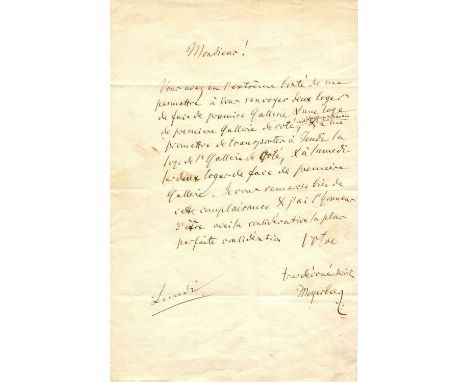 Monsieur!
Vous avez eu l'extrême bonté de me
permettre à leur renvoyer deux loges
de face de première Gallerie & une loge
de première Gallerie de coté,
permettre de transporter à Jeudi la
loge de 1e Gallerie de Coté, & à Samedi
les deux loges de face de première
Gallerie. Je vous remercie bien de
cette complaisance & j'ai l'honneur
d'être avec la considération la plus
parfaite considération Votre
tres dévoué
Meyerbeer
Lundi